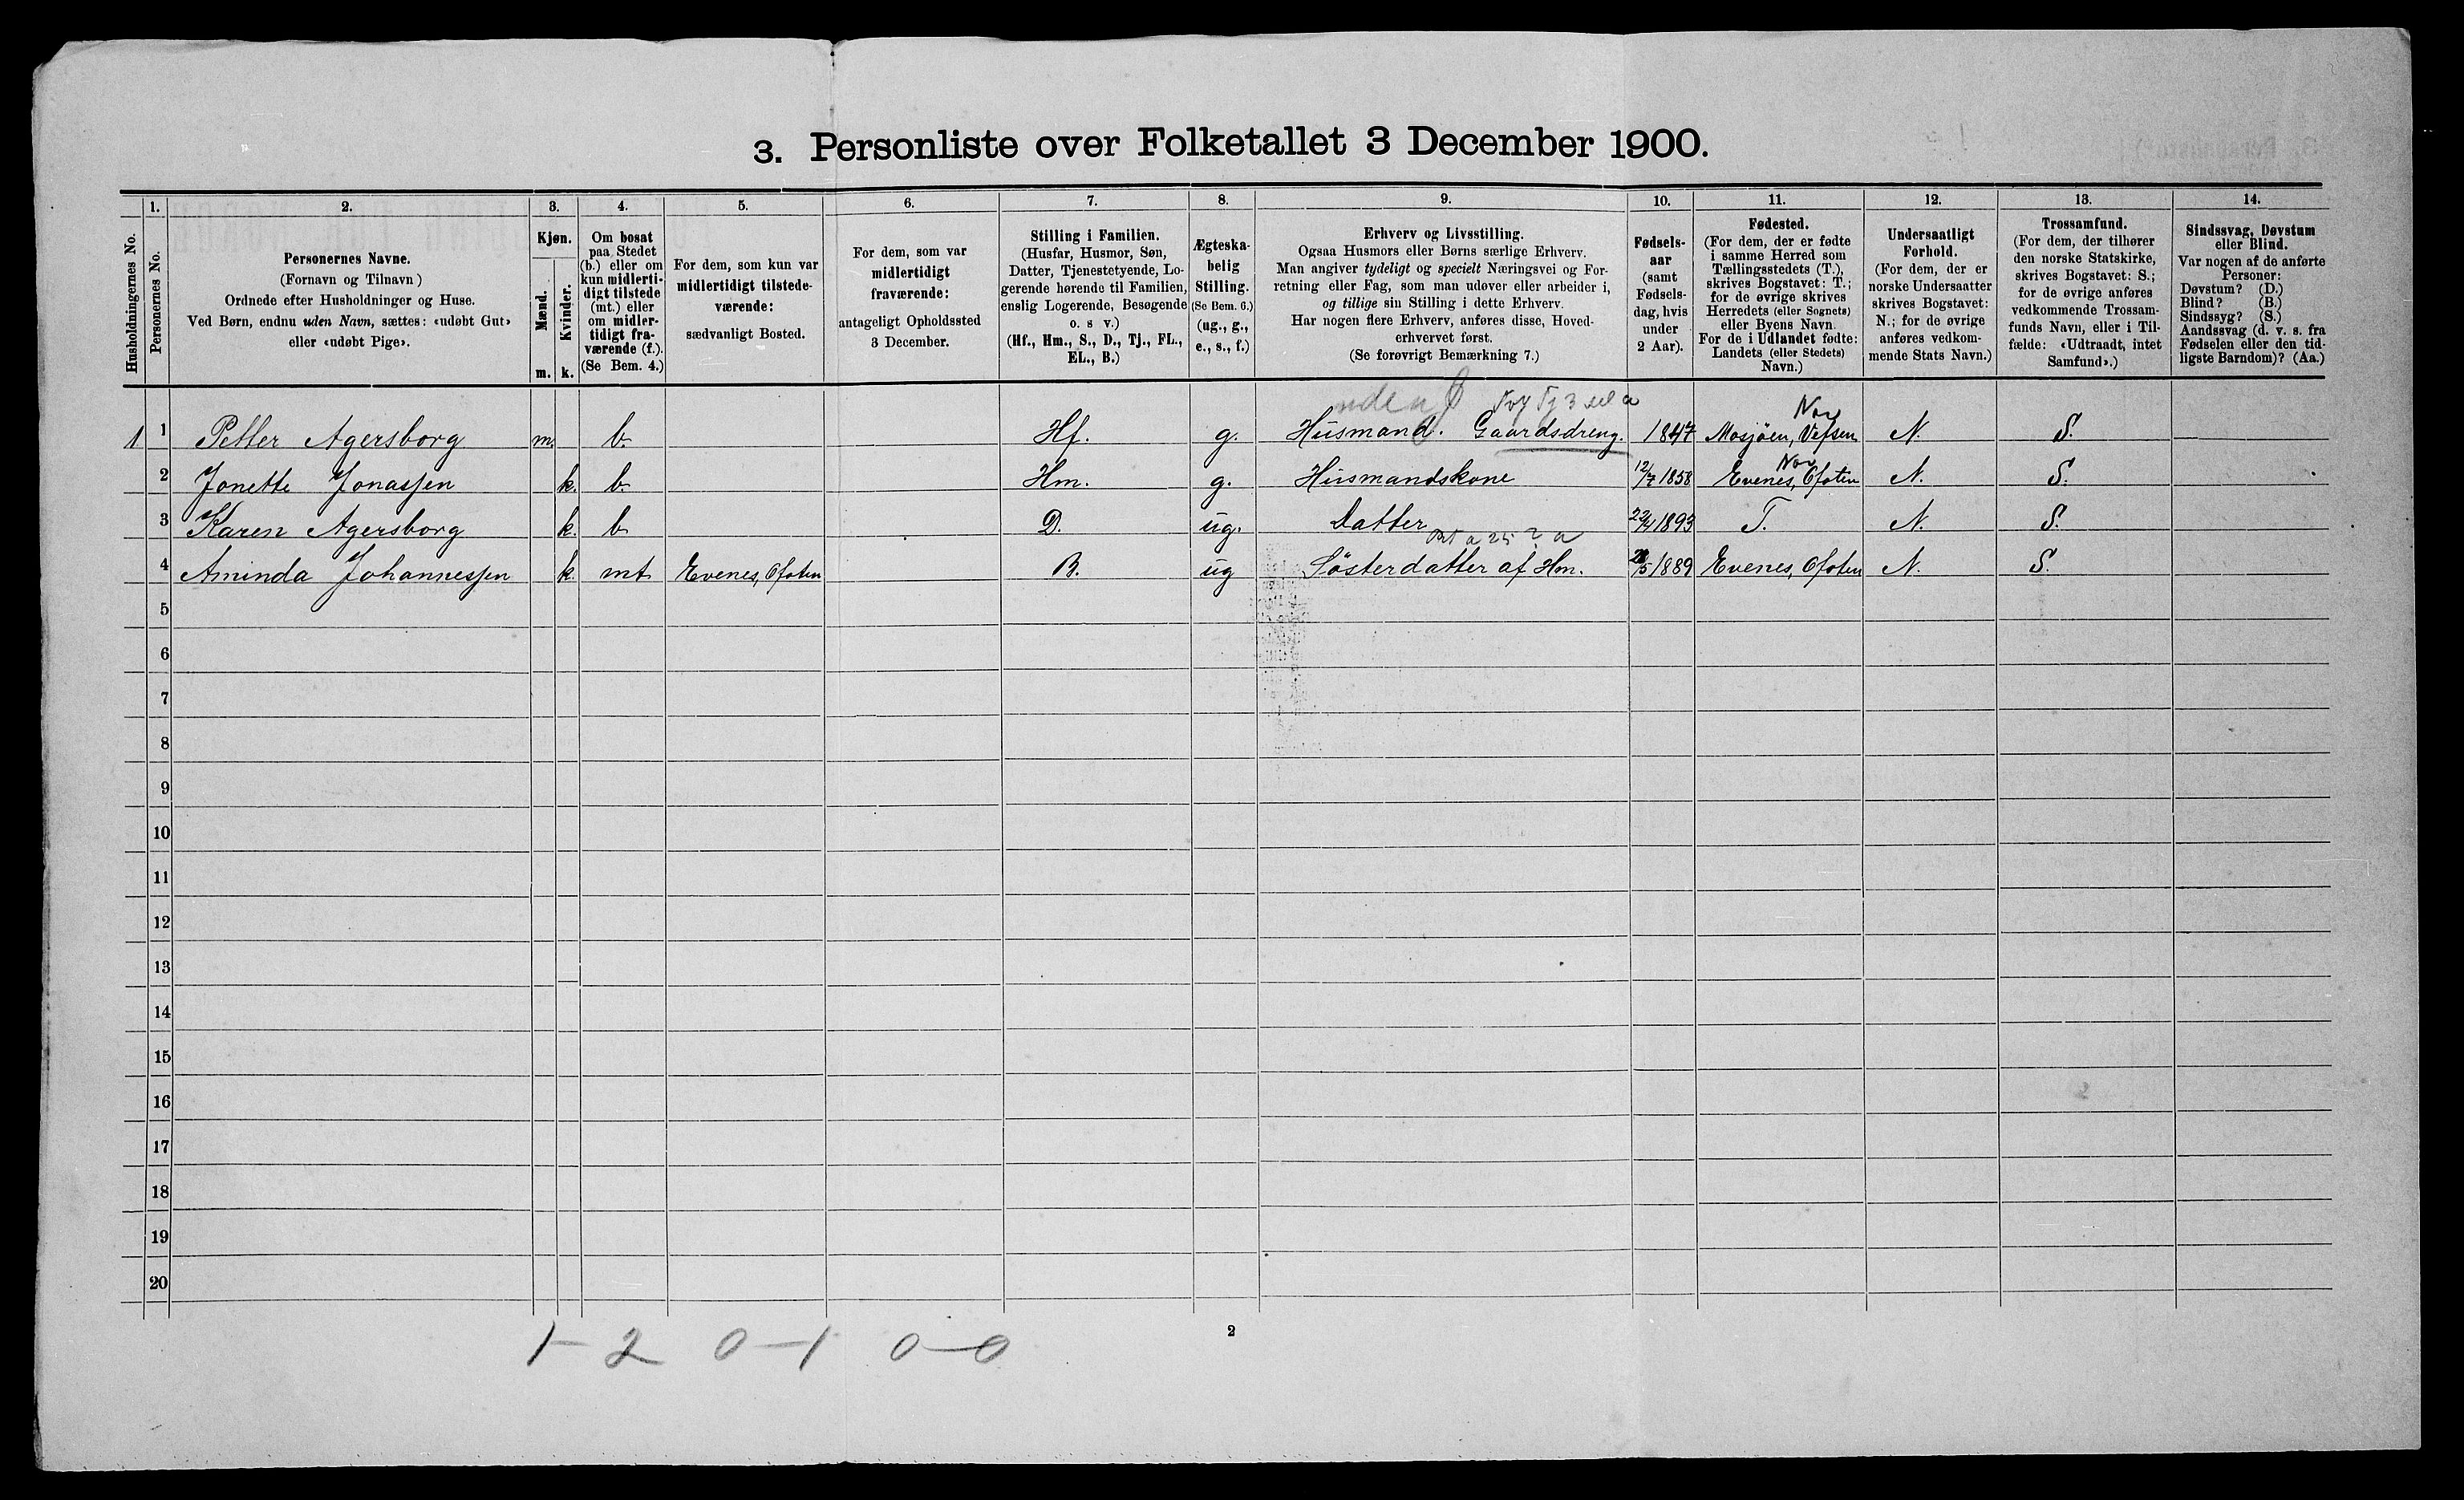 3. Personliste over Folketallet 3 December 1900.
Husholdningernes No.
1.
Personernes No.
2.
Personernes Navne.
(Fornavn og Tilnavn)
Ordnede efter Husholdninger og Huse.
Ved Børn, endnu uden Navn, sættes: «udøbt Gut»
eller «udøbt Pige».
3.
Kjøn.
Mænd.
Kvinder.
m. k.
4.
Om bosat
paa Stedet
(b.) eller om
kun midlerti-
digt tilstede
(mt.) eller
om midler-
tidigt fra-
værende (f.).
(Se Bem. 4.)
5.
For dem, som kun var
midlertidigt tilstede-
værende:
sædvanligt Bosted.
6.
For dem, som var
midlertidigt
fraværende:
antageligt Opholdssted
3 December.
7.
Stilling i Familien.
(Husfar, Husmor, Søn,
Datter, Tjenestetyende, Lo-
gerende hørende til Familien,
enslig Logerende, Besøgende
o. s v.)
(Hf., Hm., S., D., Tj., FL.,
EL., B.)
8.
Ægteska-
belig
Stilling.
(Se Bem. 6.)
(ug., g.,
e., s., f.)
9.
Erhverv og Livsstilling.
Ogsaa Husmors eller Børns særlige Erhverv.
Man angiver tydeligt og specielt Næringsvei og For-
retning eller Fag, som man udøver eller arbeider i,
og tillige sin Stilling i dette Erhverv.
Har nogen flere Erhverv, anføres disse, Hoved-
erhvervet først.
(Se forøvrigt Bemærkning 7.)
10.
Fødsels-
aar
(samt
Fødsels-
dag, hvis
under
2 Aar).
11.
Fødested.
(For dem, der er fødte
i samme Herred som
Tællingsstedets (T.),
skrives Bogstavet: T.;
for de øvrige skrives
Herredets (eller Sognets)
eller Byens Navn.
For de i Udlandet fødte:
Landets (eller Stedets)
Navn.)
12.
Undersaatligt
Forhold.
(For dem, der er
norske Undersaatter
skrives Bogstavet:
N.; for de øvrige
anføres vedkom-
mende Stats Navn.)
13.
Trossamfund.
(For dem, der tilhører
den norske Statskirke,
skrives Bogstavet: S.;
for de øvrige anføres
vedkommende Trossam-
funds Navn, eller i Til-
fælde: «Udtraadt, intet
Samfund».)
14.
Sindssvag, Døvstum
eller Blind.
Var nogen af de anførte
Personer:
Døvstum? (D.)
Blind? (B.)
Sindssyg? (S.)
Aandssvag (d. v. s. fra
Fødselen eller den tid-
ligste Barndom)? (Aa.)
uden
Nor
1 1 Petter Agersborg m. b. Hf. g. Husmand. Gaardsdreng. 1847 Mosjöen, Vefsen N. S.
Nor
2 Jonette Jonassen k. b. Hm. g. Husmandskone 12/7 1858 Evenes, Ofoten N. S.
3 Karen Agersborg k. b D. ug. Datter 1893 T. N. S.
4 Aminda Johannessen k. mt Evenes, Ofoten B. ug Søsterdatter af Hm. 1889 Evenes, Ofoten N. S.
5
6
7
8
9
10
11
12
13
14
15
16
17
18
19
20
1 - 2 0 - 1 0 - 0
2